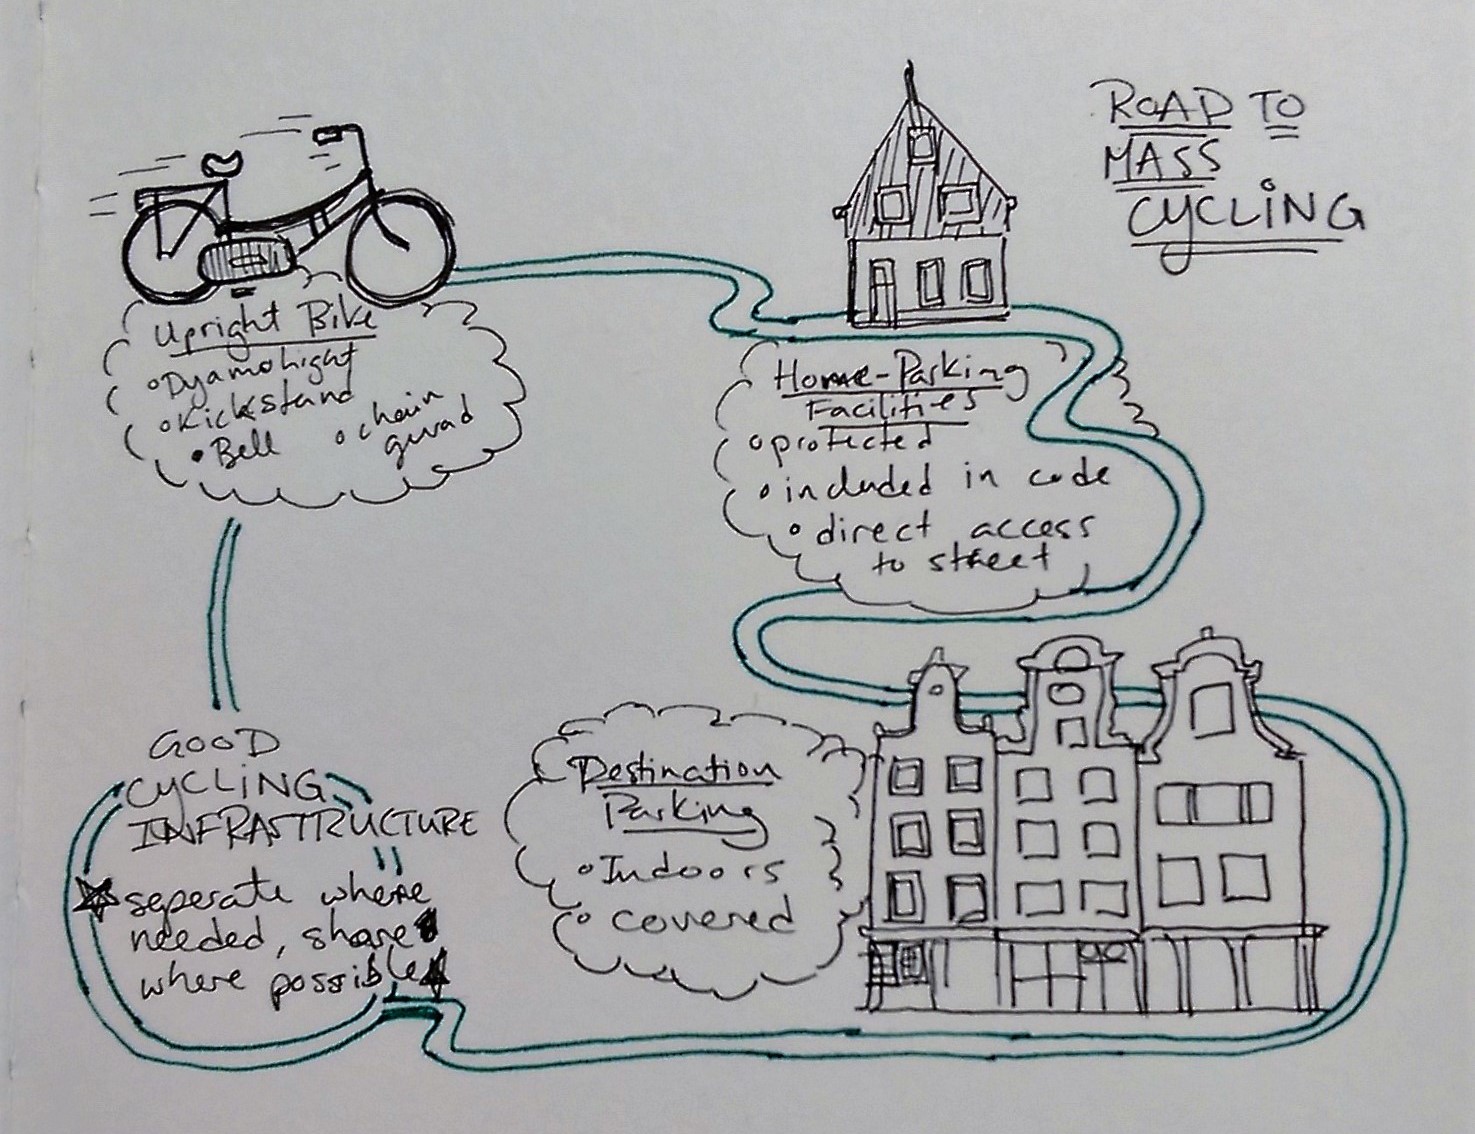 ROAD TO
MASS
CYCLING
Upright Bike
Dyamolight
Kickstand
Bell
chain
gurad
Home-Parking
Facilities
protected
included in code
direct access
to street
Destination
Parking
Indoors
covered
GOOD
CYCLING
INFRASTRUCTURE
seperate where
needed, share
where possible